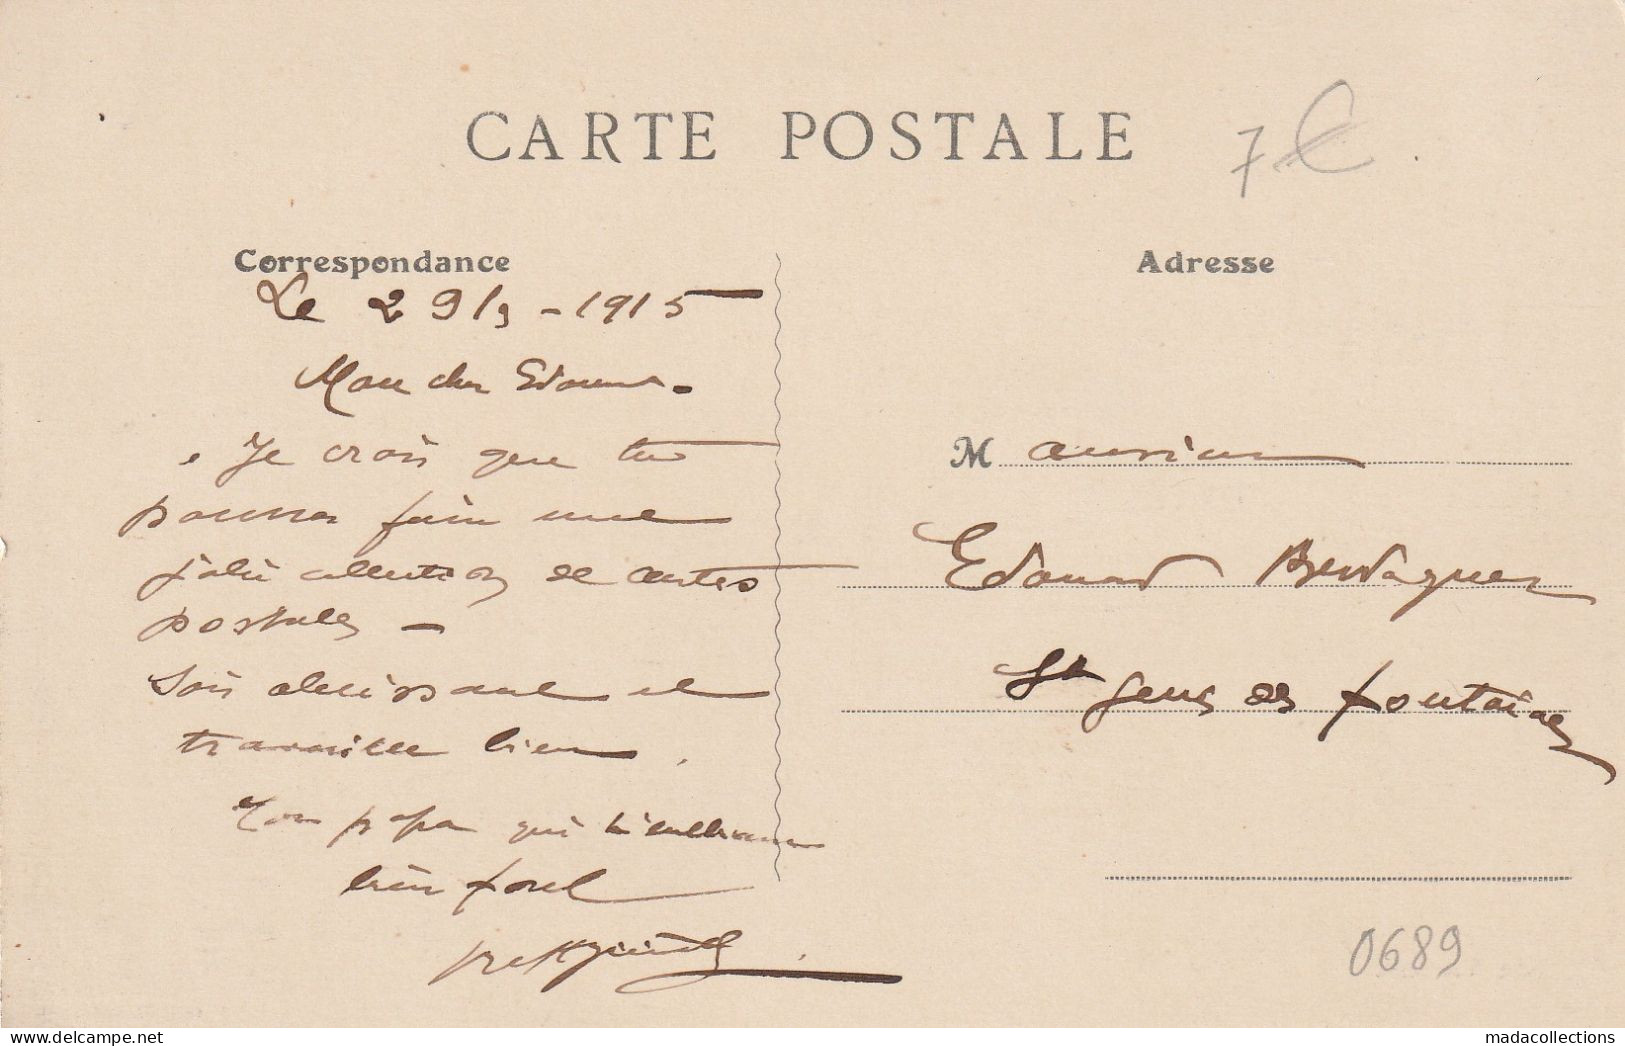 CARTE POSTALE
7 €
Correspondance
Le 29/9 - 1915
Mon cher Edouard -
Je crois que tu
pourras faire une
jolie collection de cartes
postales -
Sois obéissant et
travaille bien.
Ton papa qui
bien fort
Adresse
M
Edouard Berdaguer
St Genis des fontaines
0689
madacollections